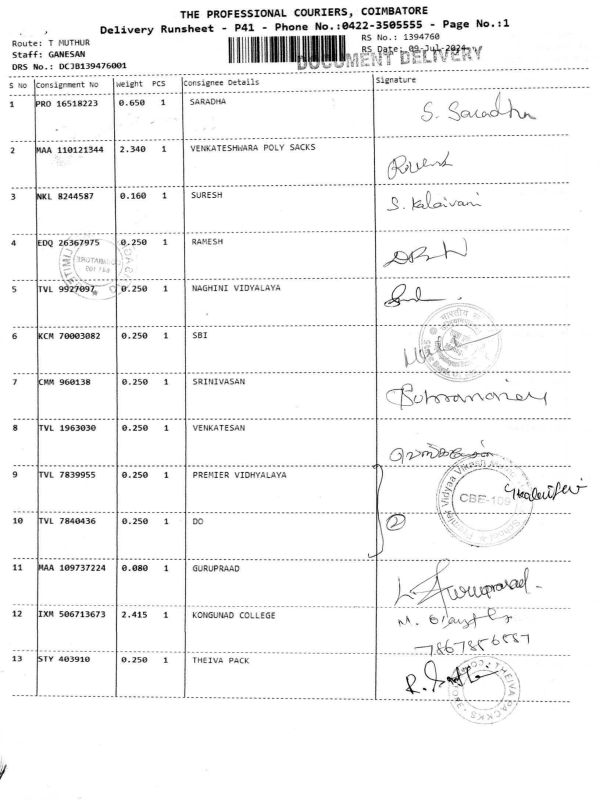 THE PROFESSIONAL COURIERS, COIMBATORE
Delivery Runsheet - P41 - Phone No.:0422-3505555 - Page No.:1
Route: T MUTHUR
RS No.: 1394760
Staff: GANESAN
RS Date: 09-Jul-2024
DRS No.: DCJB139476001
DOCUMENT DELIVERY
S No Consignment No Weight PCS Consignee Details Signature
1 PRO 16518223 0.650 1 SARADHA S. Saradha
2 MAA 110121344 2.340 1 VENKATESHWARA POLY SACKS
3 NKL 8244587 0.160 1 SURESH S. Kalaivani
4 EDQ 26367975 0.250 1 RAMESH
5 TVL 9927097 0.250 1 NAGHINI VIDYALAYA
6 KCM 70003082 0.250 1 SBI
7 CMM 960138 0.250 1 SRINIVASAN
8 TVL 1963030 0.250 1 VENKATESAN
9 TVL 7839955 0.250 1 PREMIER VIDHYALAYA
CBE-109
10 TVL 7840436 0.250 1 DO 2
11 MAA 109737224 0.080 1 GURUPRAAD L. Guruprasad
12 IXM 506713673 2.415 1 KONGUNAD COLLEGE
13 STY 403910 0.250 1 THEIVA PACK
THEIVA PACKS